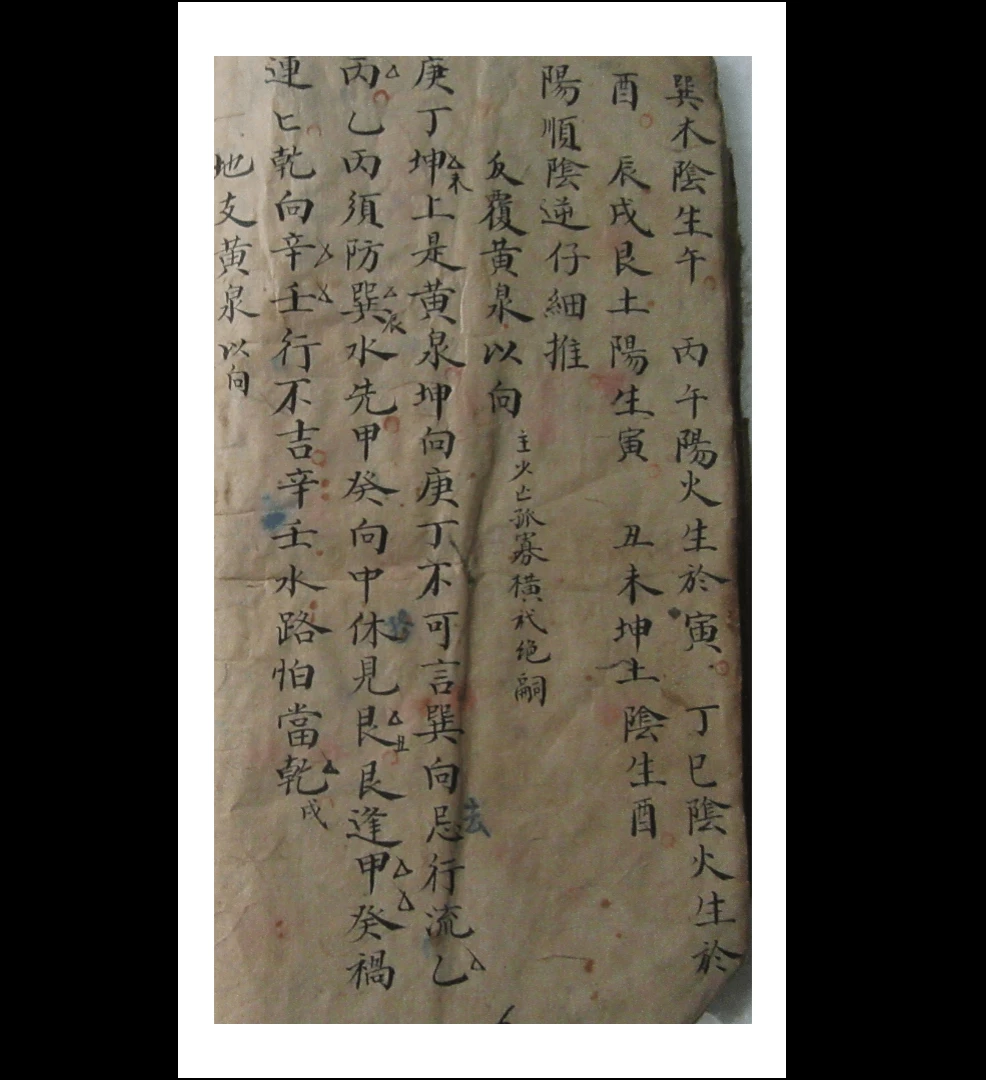 巽木陰生午　丙午陽火生於寅　丁巳陰火生於
酉　辰戌艮土陽生寅　丑未坤土陰生酉
陽順陰逆仔細推
反覆黃泉以向 主少亡孤寡橫夭绝嗣
庚丁坤未上是黃泉坤向庚丁不可言巽向忌行流乙
丙乙丙須防巽辰水先甲癸向中休見艮丑艮逢甲癸禍
連匕乾向辛壬行不吉辛壬水路怕當乾戌
地支黃泉以向
去